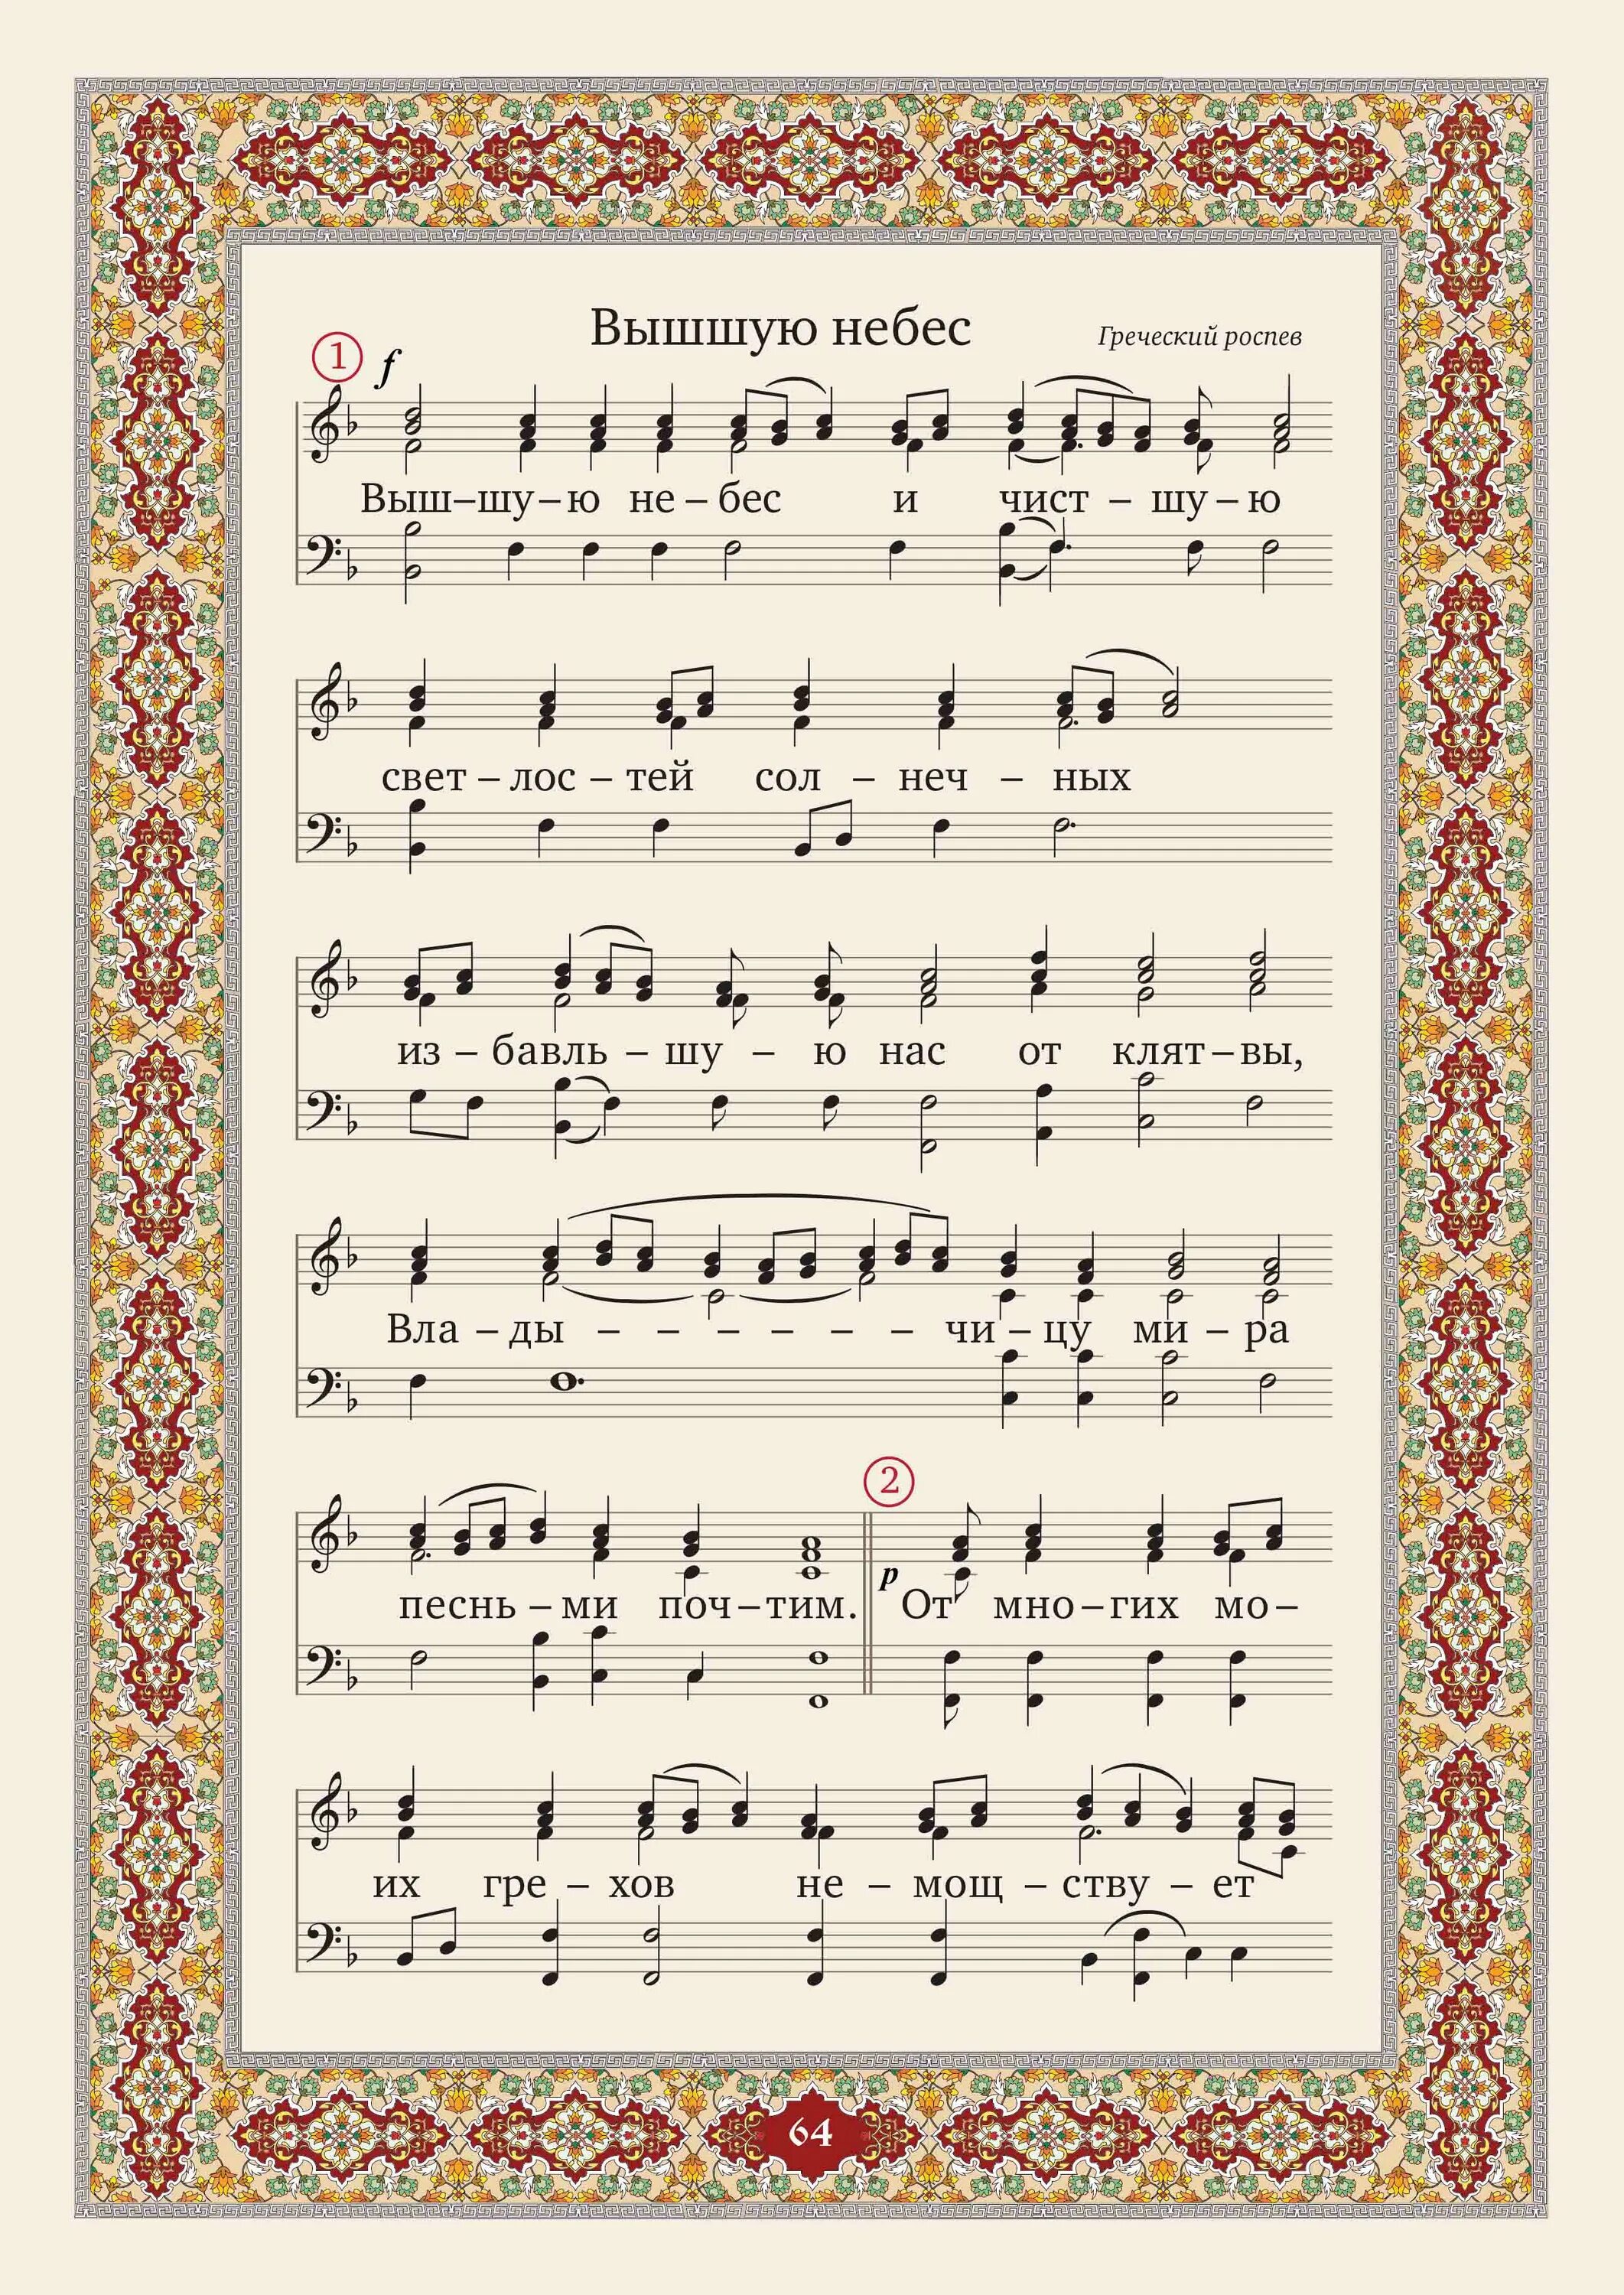 Вышшую небес
Греческий роспев
1 f
Выш–шу–ю не–бес и чист – шу–ю
свет – лос – тей сол – неч – ных
из – бавль – шу – ю нас от клят–вы,
Вла – ды – – – – – – чи – цу ми – ра
2
песнь – ми поч–тим. p От мно–гих мо–
их гре – хов не – мощ – ству – ет
64